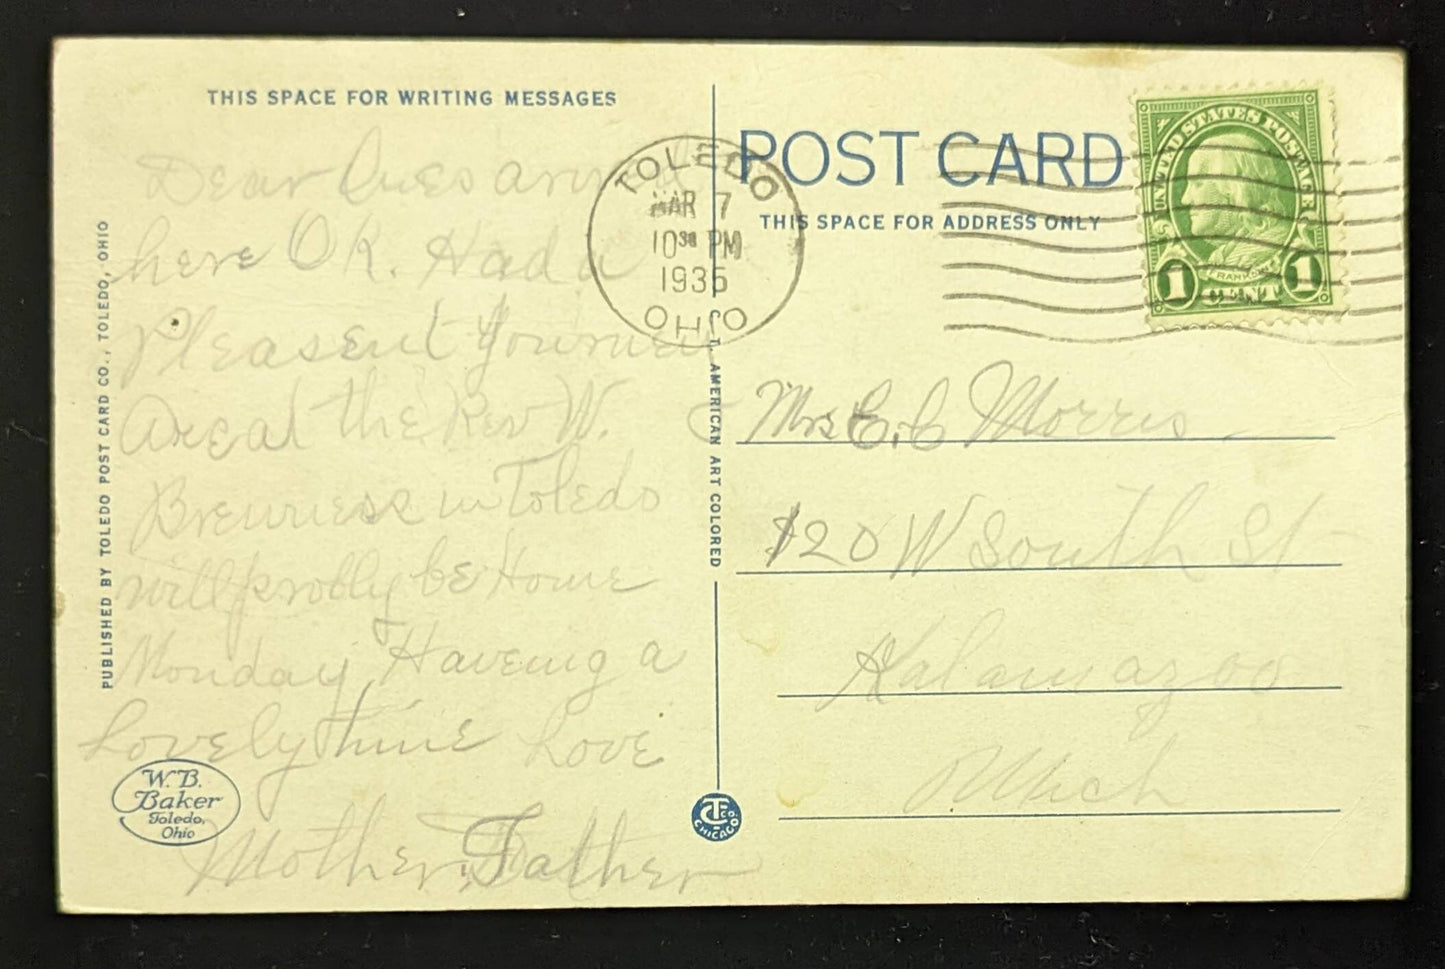 THIS SPACE FOR WRITING MESSAGES
Dear
here OK. Had a
Pleasent Journey
are at the Rev W.
in Toledo
will probly be Home
Monday Haveing a
Lovely time Love
Mother, Father
PUBLISHED BY TOLEDO POST CARD CO., TOLEDO, OHIO
W. B.
Baker
Toledo,
Ohio
TOLEDO
MAR 7
10 30 PM
1935
OHIO
C. T. AMERICAN ART COLORED
CT CO.
CHICAGO
POST CARD
THIS SPACE FOR ADDRESS ONLY
UNITED STATES POSTAGE
FRANKLIN
1 CENT 1
Mrs E. C Morris
120 W South St
Kalamazoo
Mich